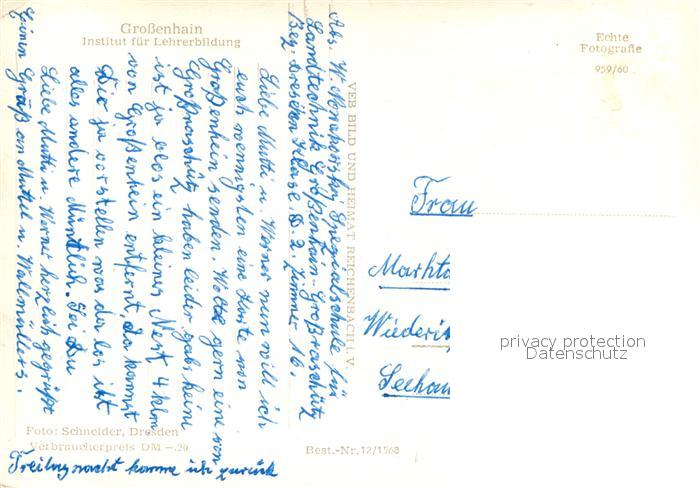 Großenhain
Institut für Lehrerbildung
Echte
Fotografie
959/60
VEB BILD UND HEIMAT REICHENBACH i. V.
Abs. W. Spezialschule für
Landtechnik Großenhain-Großraschütz
Bez. Dresden Klasse D. 2, Zimmer 16.
Liebe Mutti u. Werner nun will ich
euch wenigsten eine Karte von
Großenhein senden. Wollte gern eine von
Großraschütz haben leider gabs keine
ist ja blos ein kleines Nest 4 klm
von Großenhein entfernt. Da kannst
Dir ja vorstellen was da los ist
alles andere Mündlich. Sei Du
Liebe Mutti u. Werner herzlich gegrüßt
Einen Gruß an u. Wallmüllers.
Freitagnacht komme ich zurück
Foto: Schneider, Dresden
Verbraucherpreis DM –.20
Best.-Nr. 12/1568
Frau
Wiederi
Seehau
privacy protection
Datenschutz